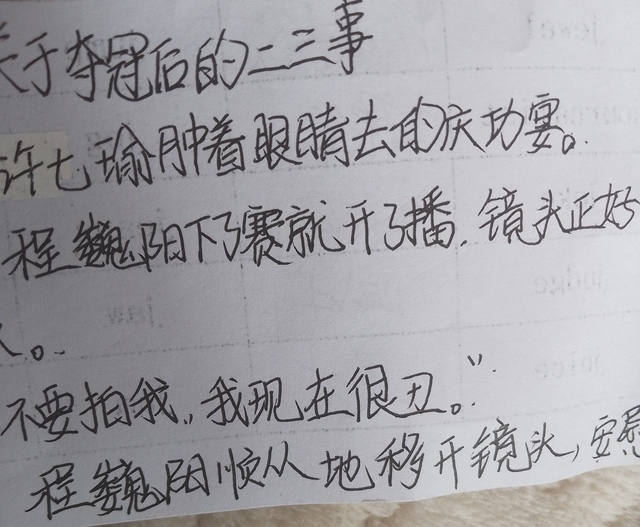 关于夺冠后的二三事
许七瑜肿着眼睛去的庆功宴。
程巍阳下了赛就开了播，镜头正好
。
不要拍我，我现在很丑。”
程巍阳顺从地移开镜头，安慰
jewel
judge
jaw
juice